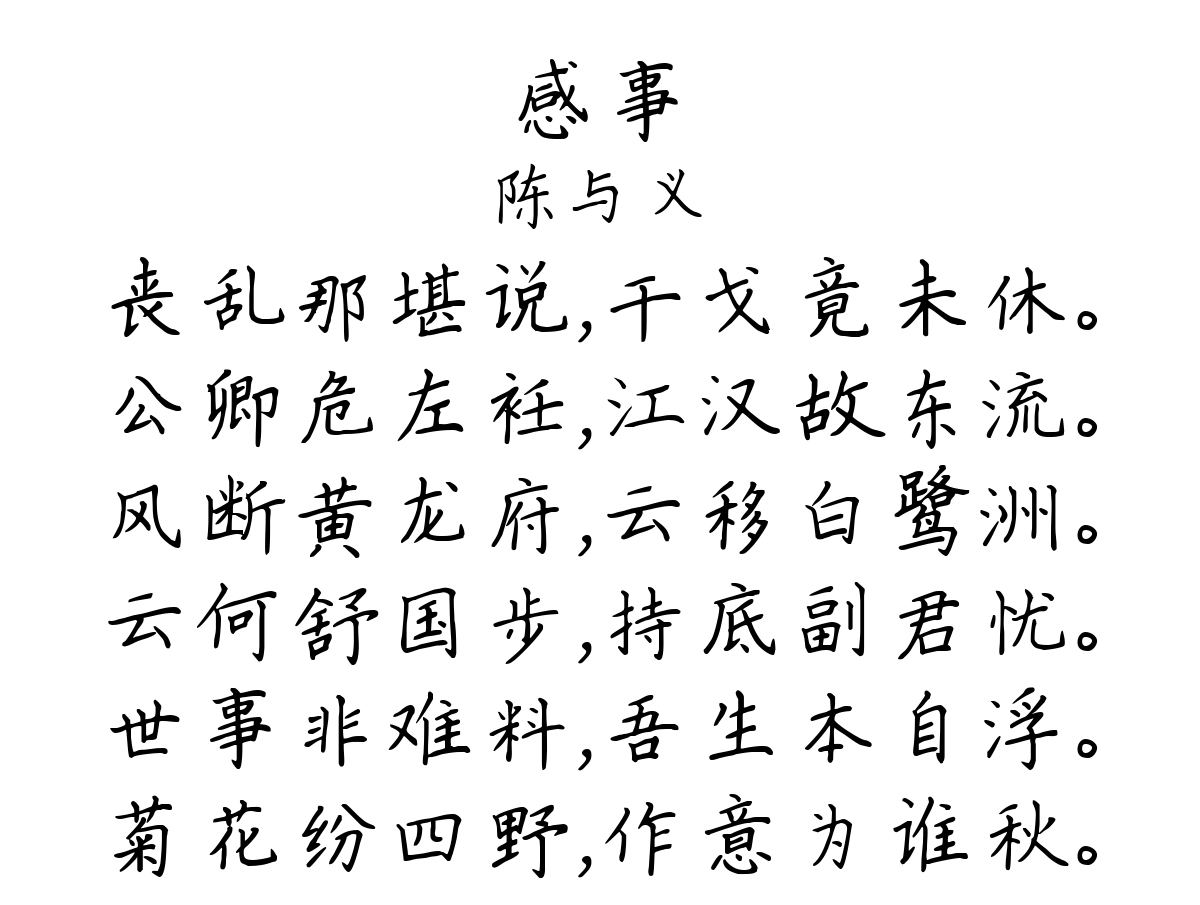 感事
陈与义
丧乱那堪说,干戈竟未休。
公卿危左衽,江汉故东流。
风断黄龙府,云移白鹭洲。
云何舒国步,持底副君忧。
世事非难料,吾生本自浮。
菊花纷四野,作意为谁秋。